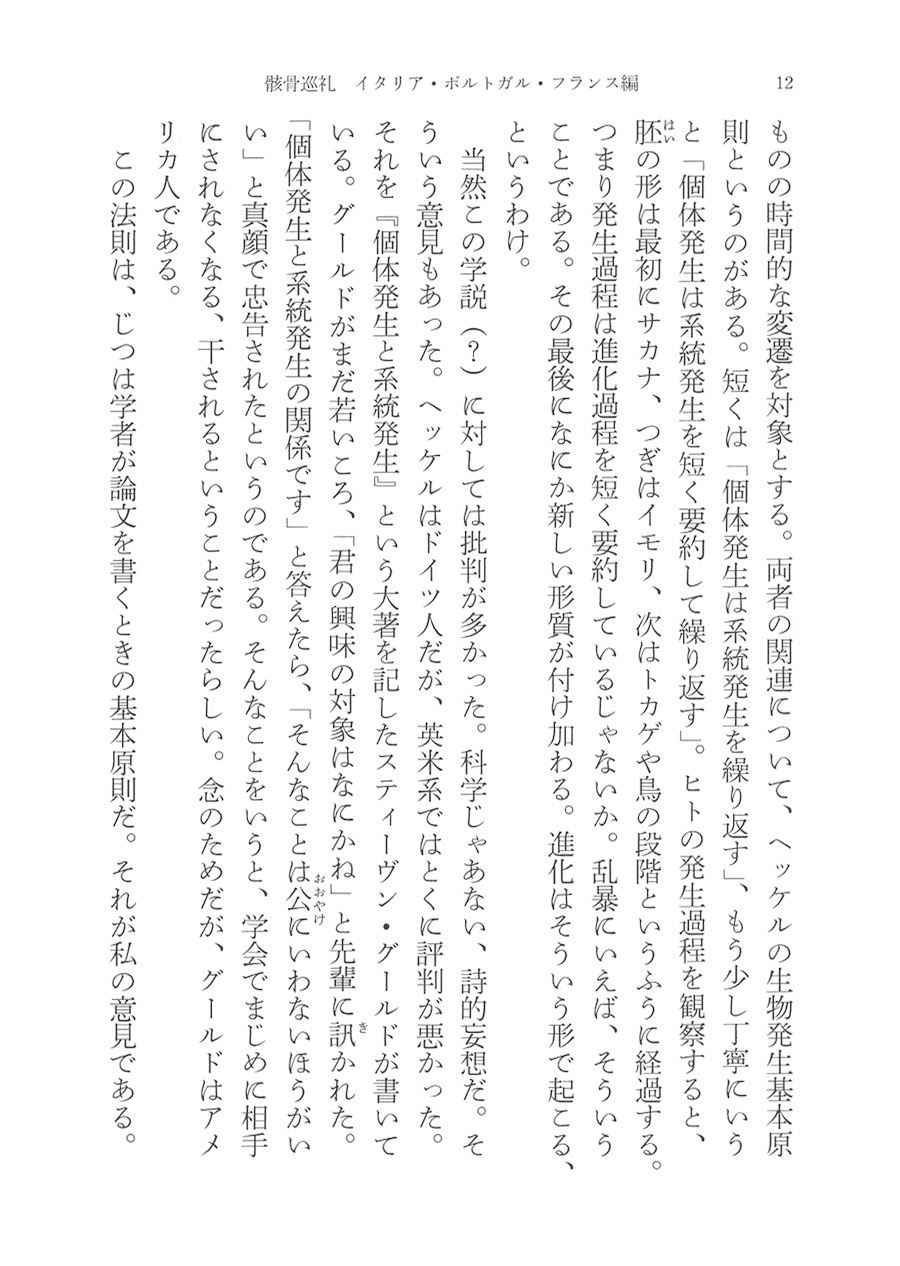 骸骨巡礼　イタリア・ポルトガル・フランス編
12
ものの時間的な変遷を対象とする。両者の関連について、ヘッケルの生物発生基本原
則というのがある。短くは「個体発生は系統発生を繰り返す」、もう少し丁寧にいう
と「個体発生は系統発生を短く要約して繰り返す」。ヒトの発生過程を観察すると、
胚はいの形は最初にサカナ、つぎはイモリ、次はトカゲや鳥の段階というふうに経過する。
つまり発生過程は進化過程を短く要約しているじゃないか。乱暴にいえば、そういう
ことである。その最後になにか新しい形質が付け加わる。進化はそういう形で起こる、
というわけ。
　当然この学説（？）に対しては批判が多かった。科学じゃあない、詩的妄想だ。そ
ういう意見もあった。ヘッケルはドイツ人だが、英米系ではとくに評判が悪かった。
それを『個体発生と系統発生』という大著を記したスティーヴン・グールドが書いて
いる。グールドがまだ若いころ、「君の興味の対象はなにかね」と先輩に訊きかれた。
「個体発生と系統発生の関係です」と答えたら、「そんなことは公おおやけにいわないほうがい
い」と真顔で忠告されたというのである。そんなことをいうと、学会でまじめに相手
にされなくなる、干されるということだったらしい。念のためだが、グールドはアメ
リカ人である。
　この法則は、じつは学者が論文を書くときの基本原則だ。それが私の意見である。